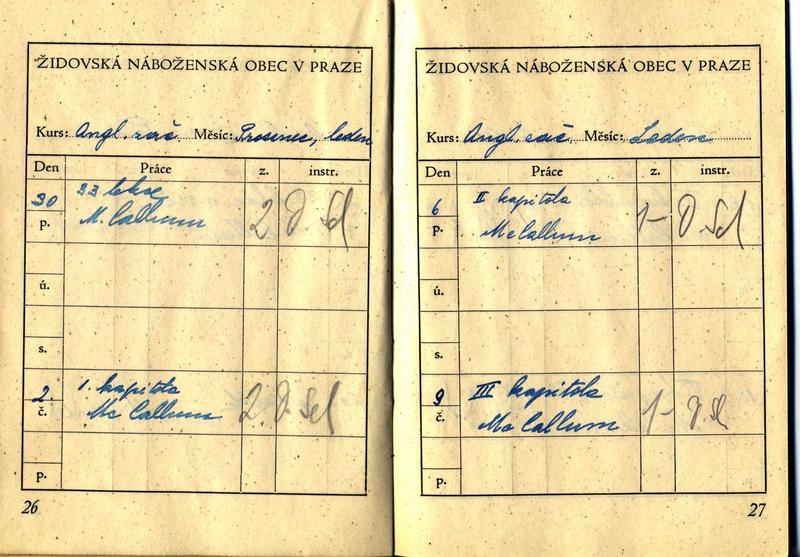 ŽIDOVSKÁ NÁBOŽENSKÁ OBEC V PRAZE
Kurs: Angl. zač. Měsíc: Prosinec, leden
Den Práce z. instr.
30 33 lekce
p. M. Callum 2
ú.
s.
2. 1. kapitola
č. Mc Callum 2
p.
26
ŽIDOVSKÁ NÁBOŽENSKÁ OBEC V PRAZE
Kurs: Angl. zač. Měsíc: Leden
Den Práce z. instr.
6 II kapitola
p. Mc Callum 1-
ú.
s.
9 III kapitola
č. Mc Callum 1-
p.
27